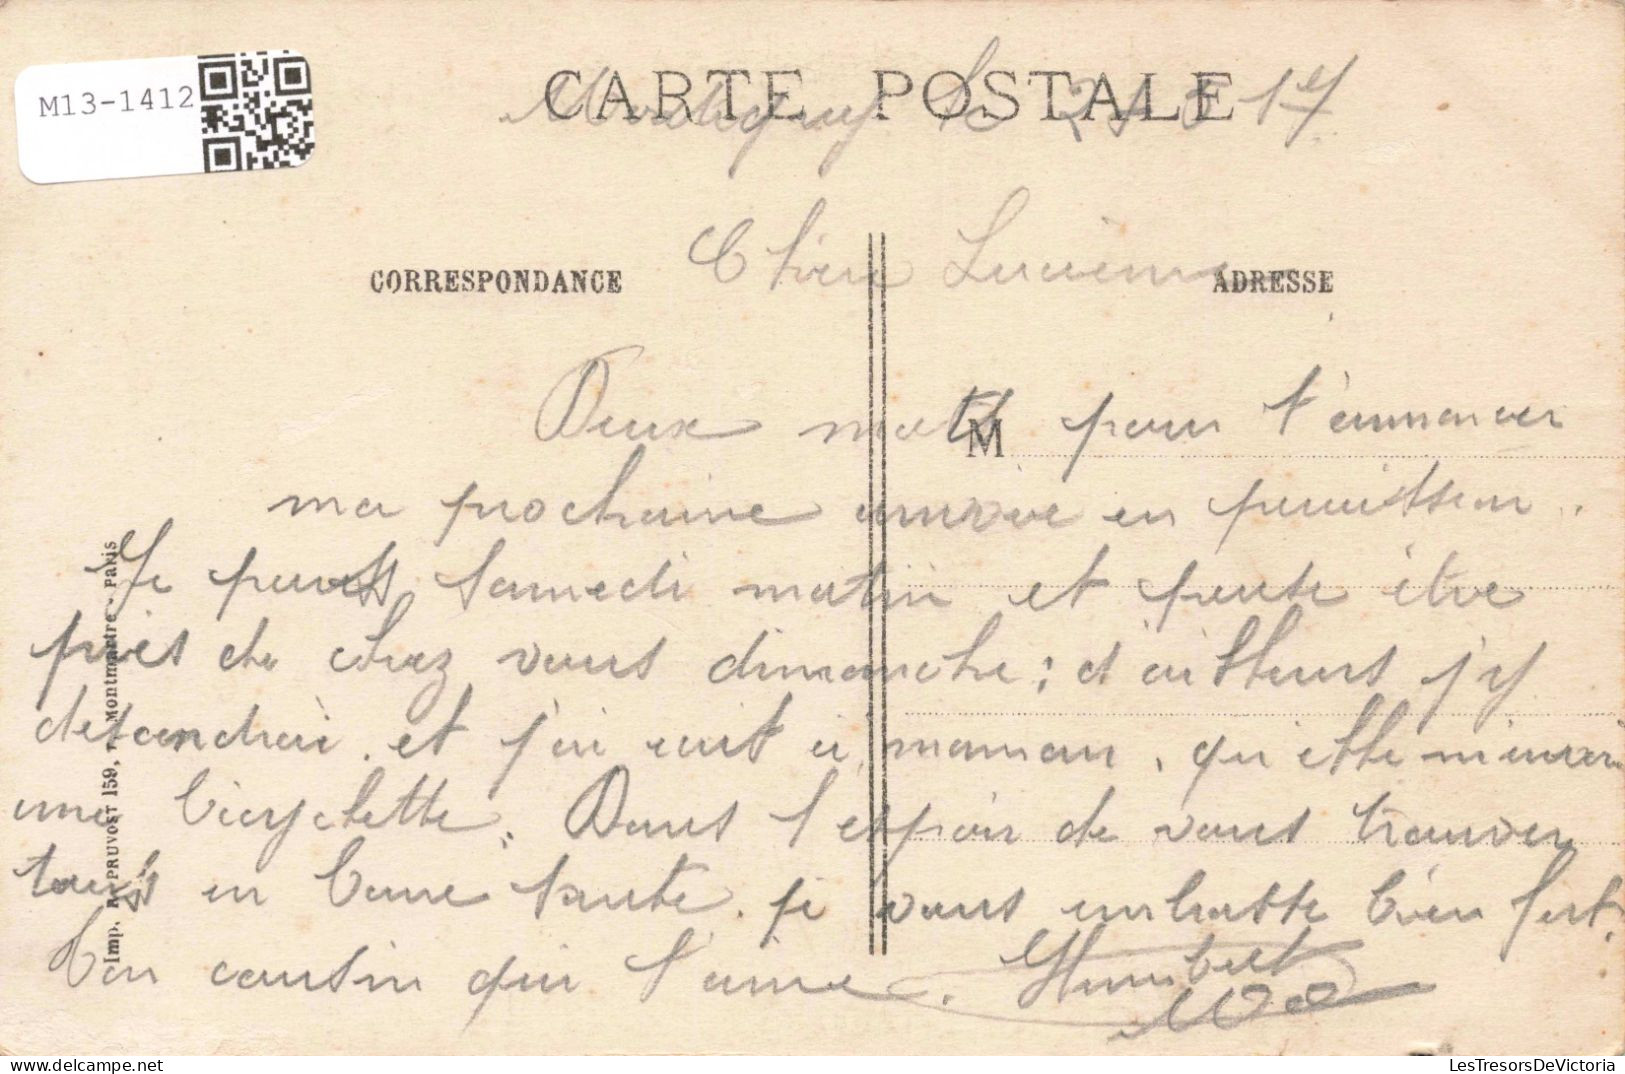 M13-1412
CARTE POSTALE
le 21 5 17
Chère Lucienne
CORRESPONDANCE
ADRESSE
M
Deux mots pour t'annoncer
ma prochaine arrivée en permission.
Je pars samedi matin et peute être
près de chez vous dimanche; d'ailleurs j'y
desandrai. et j'ai écrit à maman, qu'elle m'envoi
une bicyclette. Dans l'espoir de vous trouver
tous en bonne santé. je vous embrasse bien fort.
Ton cousin qui t'aime. Humbert
Imp. A. PRUVOST 159, r. Montmartre - Paris
LesTresorsDeVictoria